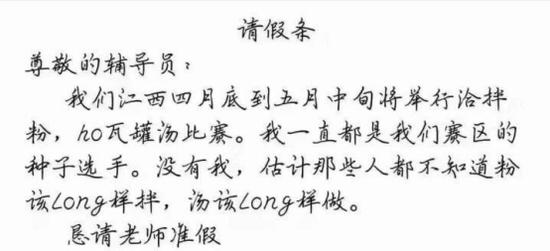 请假条
尊敬的辅导员：
我们江西四月底到五月中旬将举行洽拌
粉，ho瓦罐汤比赛。我一直都是我们赛区的
种子选手。没有我，估计那些人都不知道粉
该Long样拌，汤该Long样做。
恳请老师准假